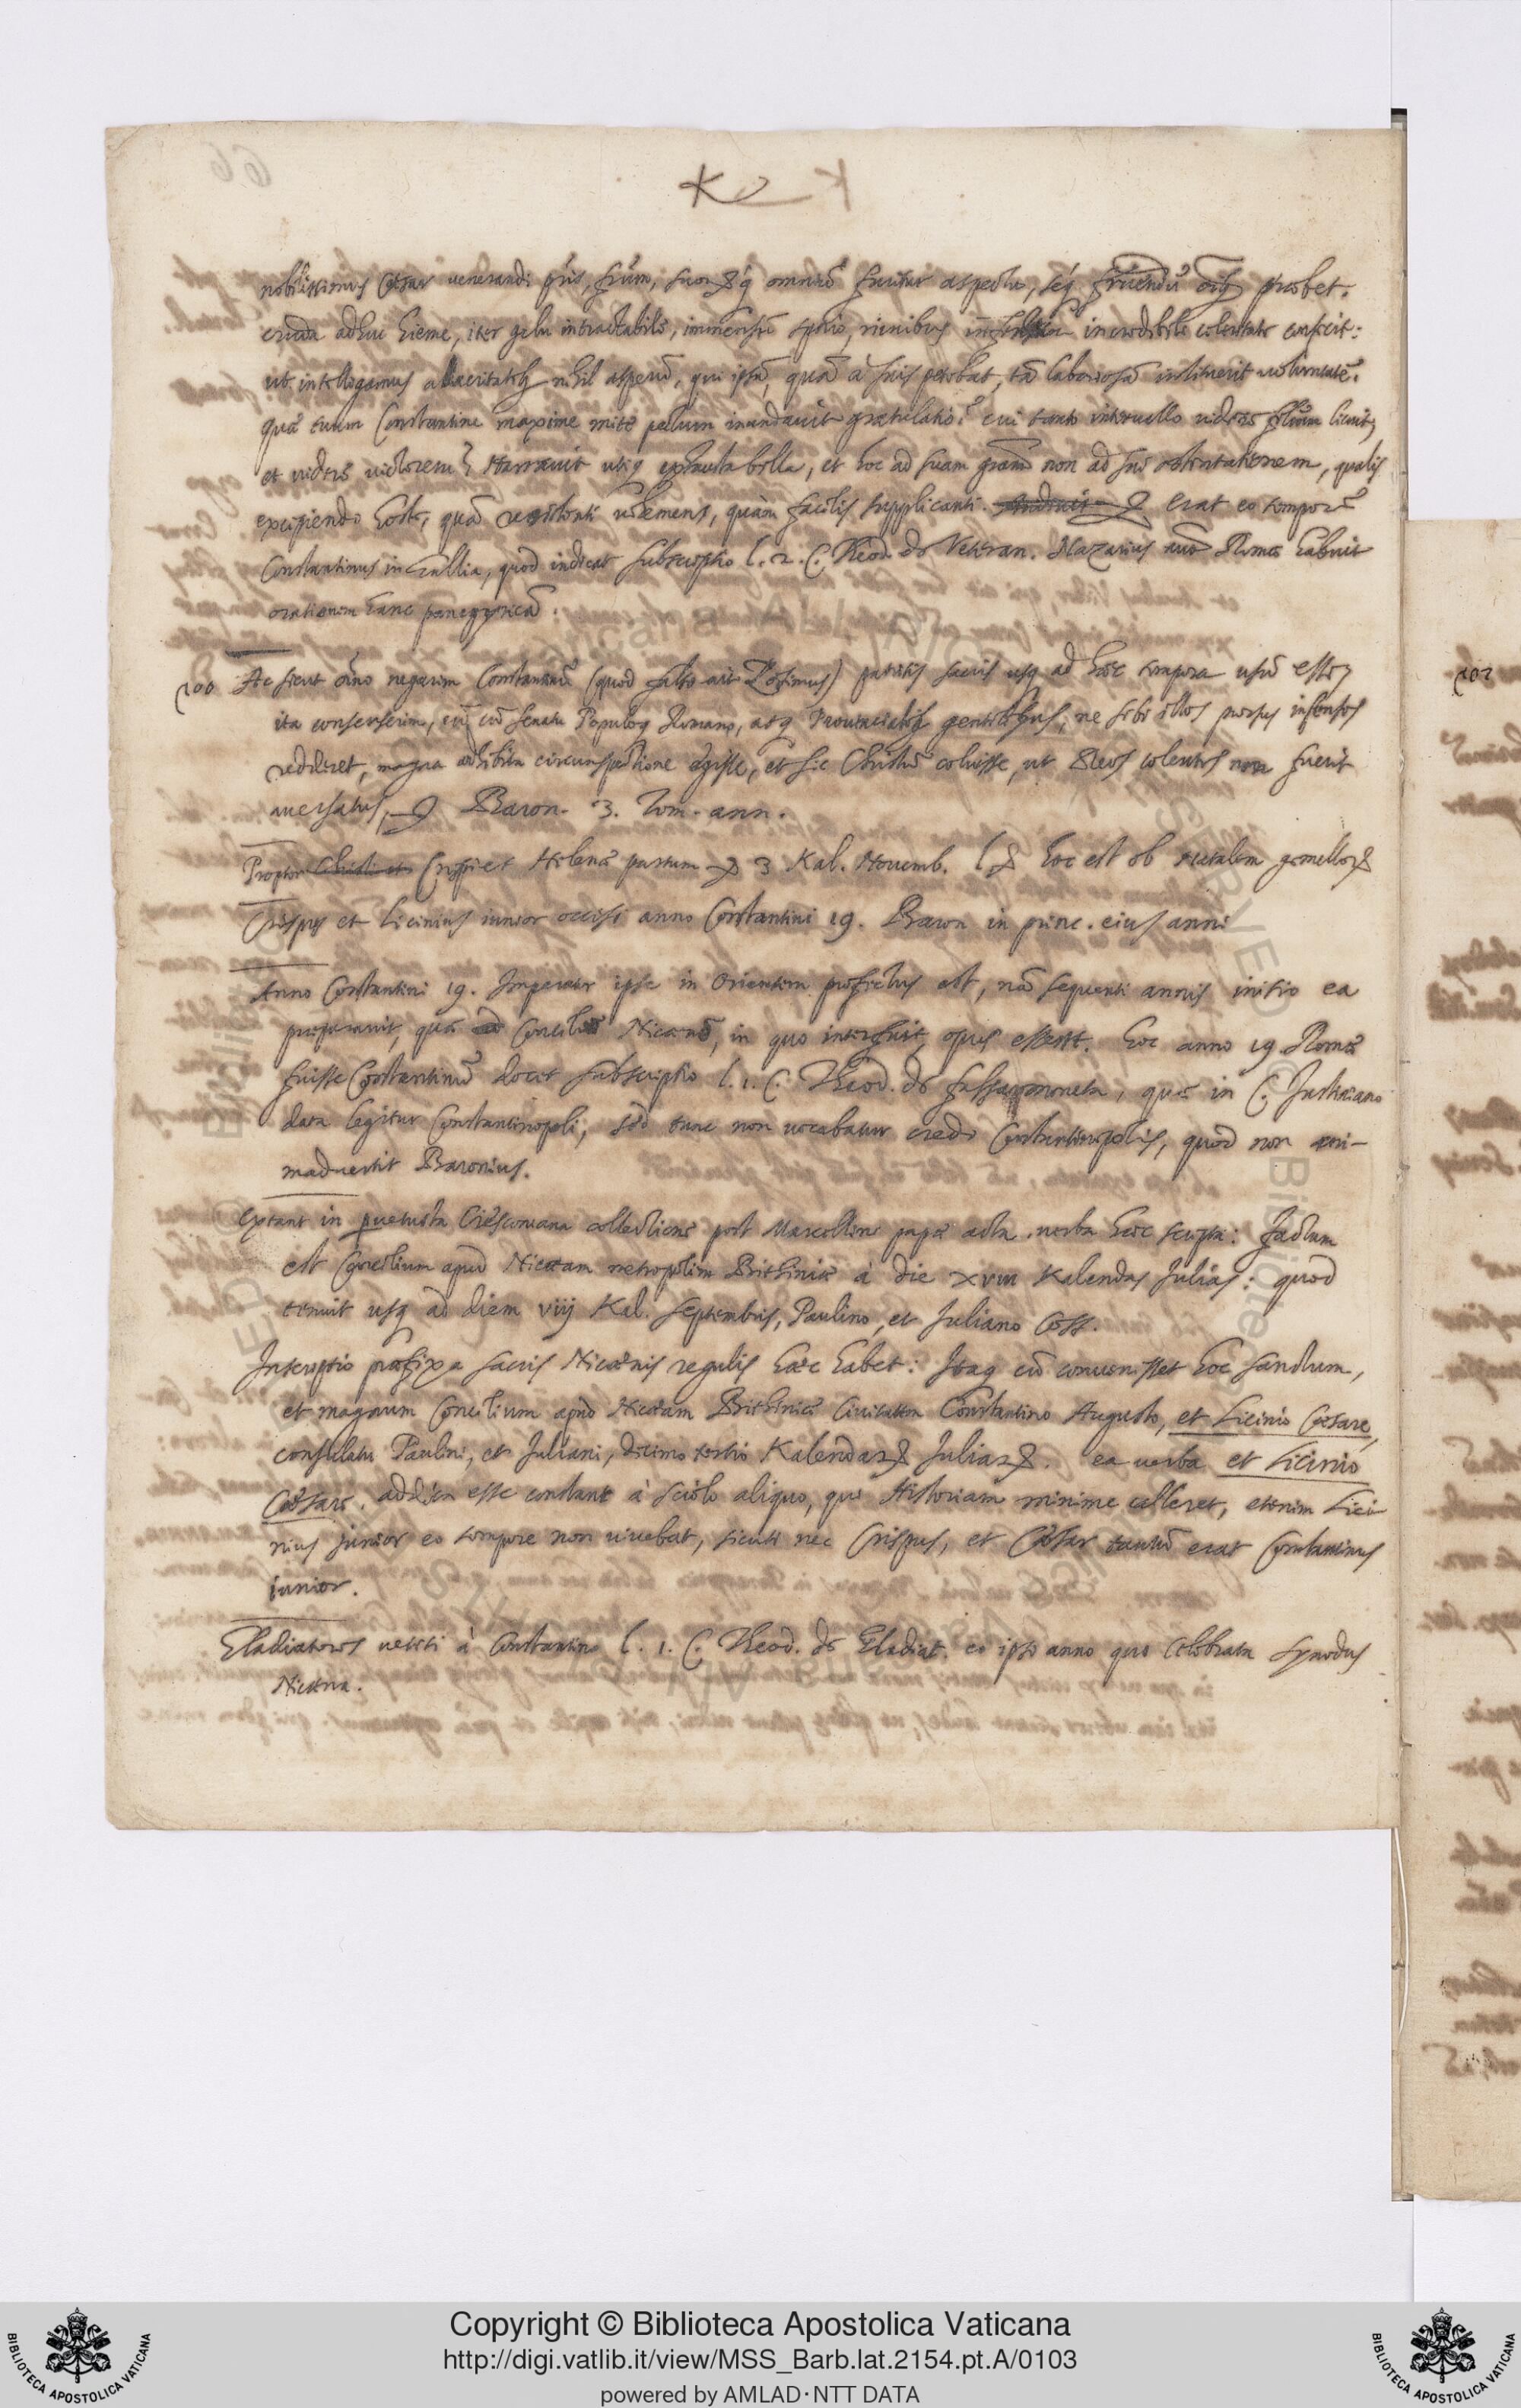 nobilissimus Cesar venerandi pris, frum, suorq; omniũ fruitur aspectu, seq; fruendũ oĩbq; præbet.
cruda adhuc hieme, iter gelu intractabile, immensũ spatio, niuibus incredibile celeritate conficit:
ut intelligamus alacritatibq; nihil asperũ, qui ipsũ, quã à suis petebat, tã laboriosã instituerit voluntatẽ.
quæ tuum Constantine maxime mite pectum inundauit gratulatio? cui tanto interuallo videre filium licuit,
et videre victorem? Narrauit utiq; exhausta bella, et hoc ad suam gram non ad sui ostentationem, qualis
excipiendo hosti, quã resistenti vehemens, quàm facilis supplicanti. Erat eo temporẽ
Constantinus in Gallia, quod indicat subscriptio l. 2. C. Theod. de Veteran. Nazarius aut Romæ habuit
orationem hanc panegyricã.
100 Ac sicut oĩno negarim Constantinũ (quod falso ait Zosimus) patriis sacris usq; ad hæc tempora usũ esse,
ita consenserim, eũ cũ Senatu Populoq; Romano, atq; Prouinciabq; gentilibus, ne sibi illos prorsus infensos
redderet, magna adhibita circunspectione egisse, et sic Christũ coluisse, ut Deos colentes non fuerit
auersatus, Baron. 3. Tom. ann.
Propter Crispi et Helenæ partum 3 Kal. Nouemb. hoc est ob natalem gemellor
Crispus et Licinius iunior occisi anno Constantini 19. Baron in princ. eius anni
Anno Constantini 19. Imperator ipse in Orientem profectus est, nã sequenti annis initio ea
preparauit, quæ Conciliũ Nicænũ, in quo interfuit, opus essent. hoc anno 19 Romæ
fuisse Constantinũ docet subscriptio l. 1. C. Theod. de falsa moneta, quæ in C. Justiniano
data legitur Constantinopoli, sed tunc non vocabatur credo Constantinopolis, quod non ani-
maduertit Baronius.
Extant in peruetusta Cresconiana collectione post Marcellini papæ acta verba hæc scripta: Factum
est Concilium apud Nicæam metropolim Bithiniæ à die XVIII Kalendas Julias: quod
tenuit usq; ad diem viij Kal. Septembris, Paulino, et Juliano Coss.
Inscriptio præfixa sacris Nicænis regulis hæc habet: Itaq; cũ conuenisset hoc sanctum,
et magnum Concilium apud Nicæam Bithiniæ Ciuitatem Constantino Augusto, et Licinio Cæsare,
consulatu Paulini, et Juliani, decimo tertio Kalendar Juliar. ea verba et Licinio
Cæsare, addita esse constant à sciolo aliquo, qui Historiam minime calleret, etenim Lici-
nius junior eo tempore non viuebat, sicuti nec Crispus, et Cæsar tantũ erat Constantinus
iunior.
Gladiatores vetiti à Constantino l. 1. C. Theod. de Gladiat. eo ipso anno quo celebrata Synodus
Nicæna.
102
Copyright © Biblioteca Apostolica Vaticana
http://digi.vatlib.it/view/MSS_Barb.lat.2154.pt.A/0103
powered by AMLAD·NTT DATA
BIBLIOTECA APOSTOLICA VATICANA
BIBLIOTECA APOSTOLICA VATICANA